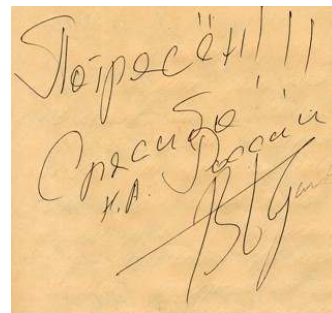 Потрясён!!!
Спасибо!!
н.А. России